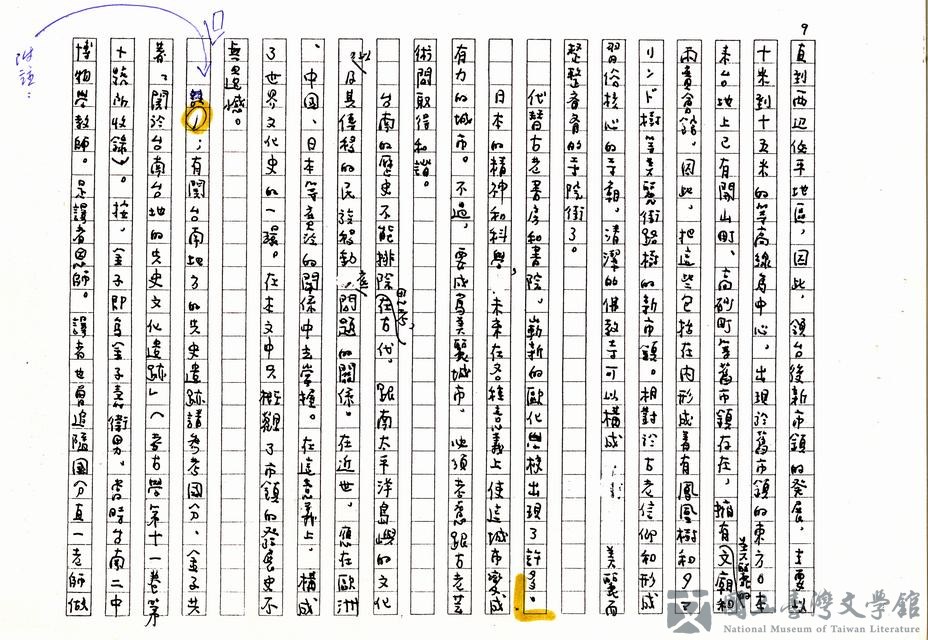 9
直到西辺低平地區，因此，領台後新市鎮的發展，主要以
十米到十五米的等高線為中心，出現於舊市鎮的東方。本
來台地上已有開山町、高砂町等舊市鎮存在，擁有美麗的文廟和
兩廣會館。因此，把這些包括在內形成着有鳳凰樹和タマ
リンド樹等美麗街路樹的新市鎮。相對於古老信仰和形成
習俗核心的寺廟，清潔的佛教寺可以構成 美麗而
整整齊齊的寺院街了。
代替古老書房和書院，嶄新的歐化學校出現了許多。
日本的精神和科學，未來在各種意義上使這城市變成
有力的城市。不過，要成為美麗城市，必須考慮跟古老芸
術間取得和諧。
台南的歷史不能排除在古代，跟南太平洋島嶼的文化
以及其傳移的民族移動問題的關係。在近世，應在歐洲
、中國、日本等貿易的關係中去掌握。在這意義上，構成
了世界文化史的一環。在本文中只概觀了市鎮的發展史不
無遺憾。
附註：
註1；有關台南地方的先史遺跡請參考國分、金子共
著，「關於台南台地的先史文化遺跡」（考古學第十一卷第
十號所收錄）。按，金子即為金子壽衛男，當時台南二中
博物學教師。是譯者恩師。譯者也曾追隨國分直一老師做
國立臺灣文學館
National Museum of Taiwan Literature